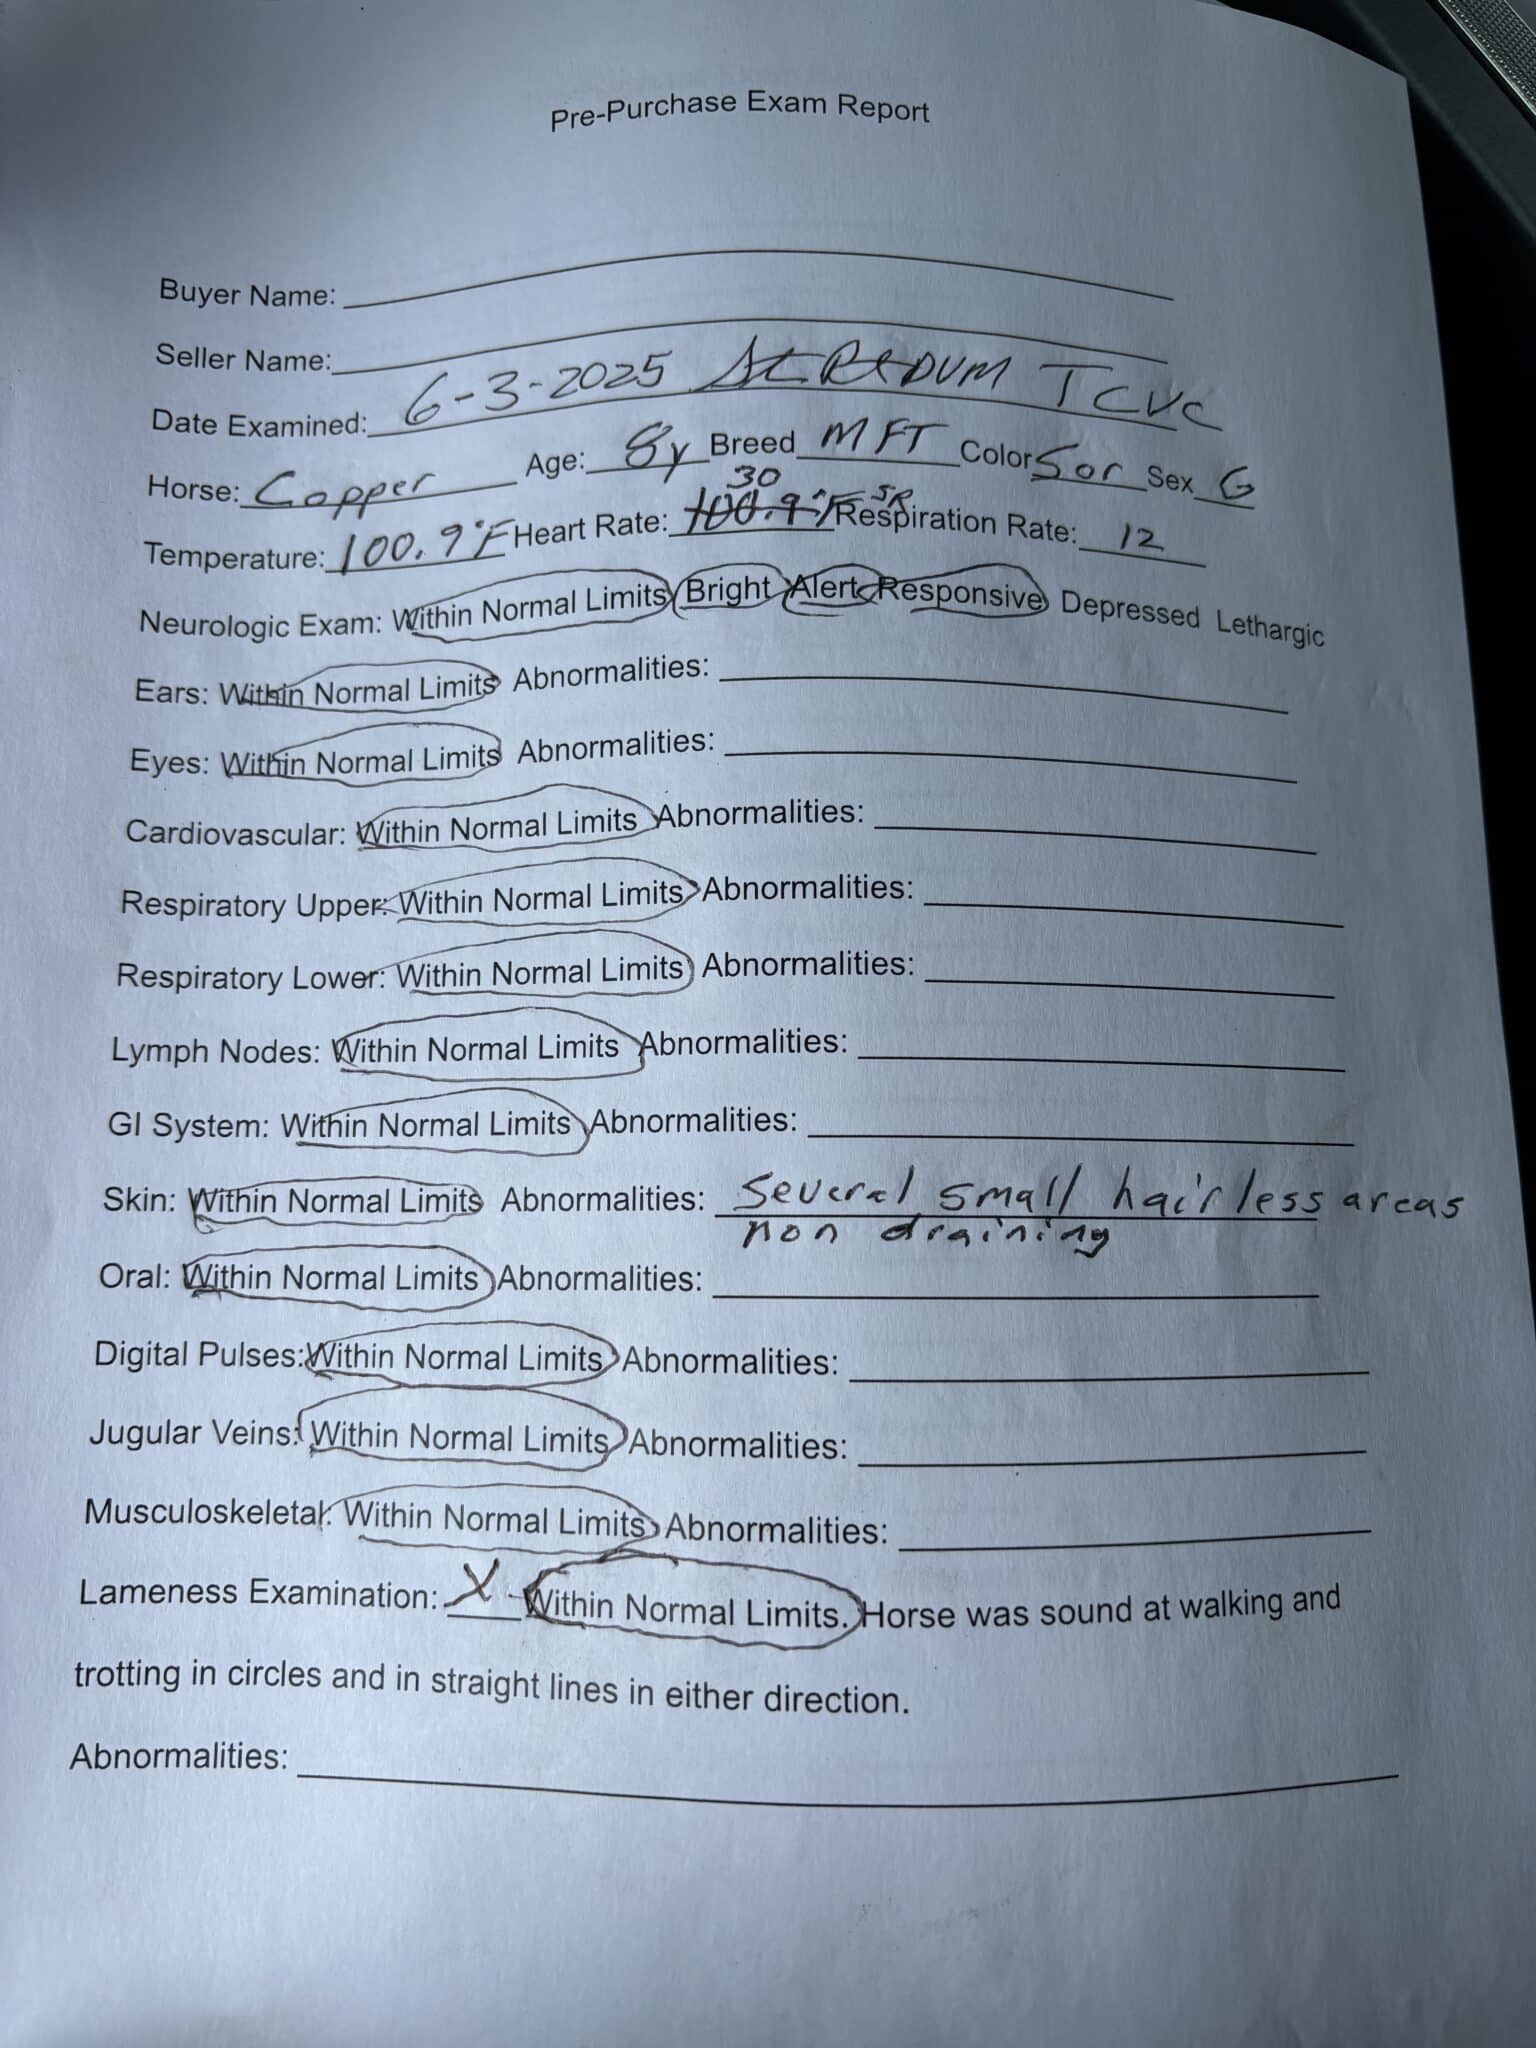 Pre-Purchase Exam Report
Buyer Name:
Seller Name:
Date Examined: 6-3-2025 DVM TCVC
Horse: Copper Age: 8y Breed MFT Color Sor Sex G
30
Temperature: 100.9°F Heart Rate: 100.9°F SR Respiration Rate: 12
Neurologic Exam: Within Normal Limits Bright Alert Responsive Depressed Lethargic
Ears: Within Normal Limits Abnormalities:
Eyes: Within Normal Limits Abnormalities:
Cardiovascular: Within Normal Limits Abnormalities:
Respiratory Upper: Within Normal Limits Abnormalities:
Respiratory Lower: Within Normal Limits Abnormalities:
Lymph Nodes: Within Normal Limits Abnormalities:
GI System: Within Normal Limits Abnormalities:
Skin: Within Normal Limits Abnormalities: Several small hairless areas
non draining
Oral: Within Normal Limits Abnormalities:
Digital Pulses: Within Normal Limits Abnormalities:
Jugular Veins: Within Normal Limits Abnormalities:
Musculoskeletal: Within Normal Limits Abnormalities:
Lameness Examination: X Within Normal Limits. Horse was sound at walking and
trotting in circles and in straight lines in either direction.
Abnormalities: